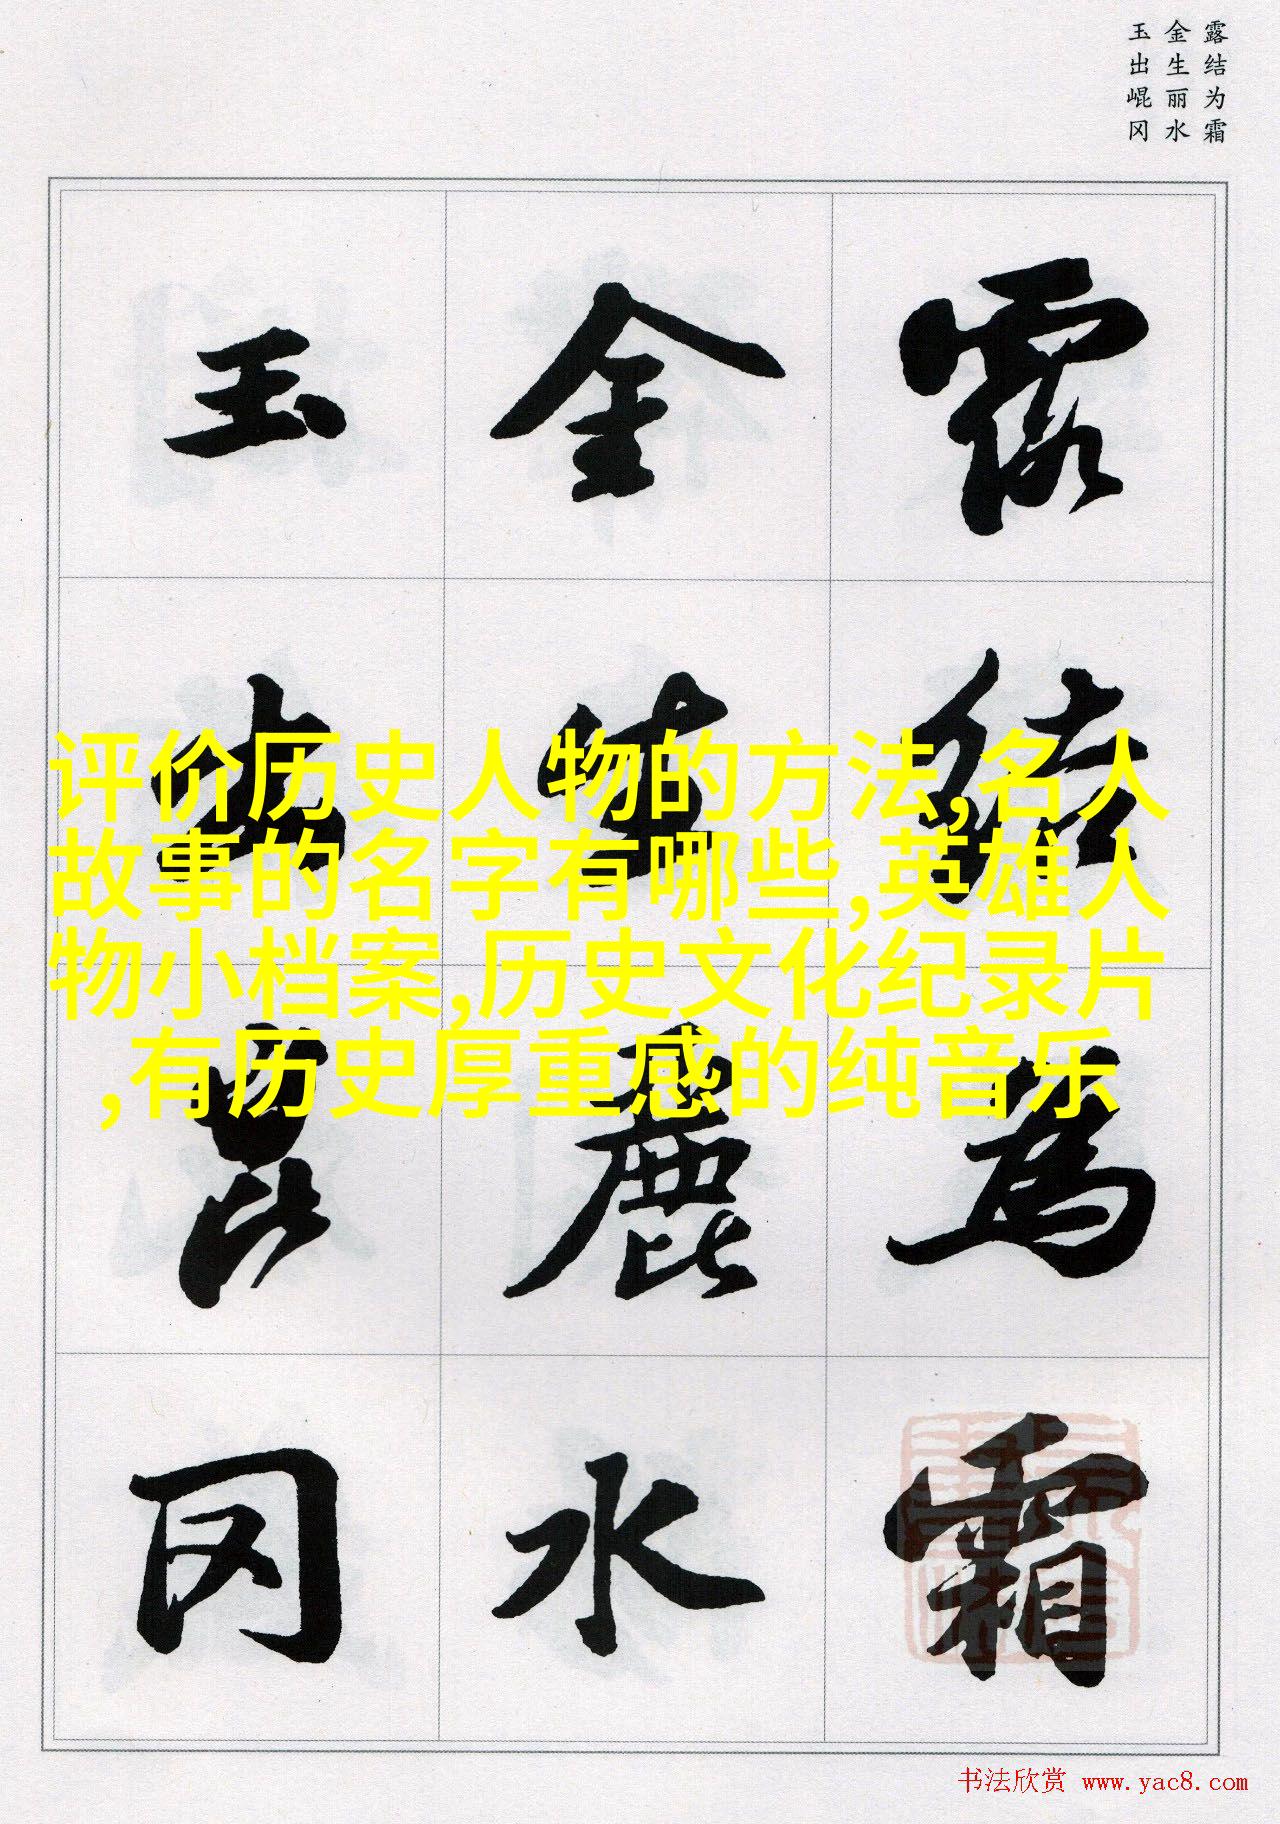 露结为霜
金生丽水
玉出崐冈
露結為霜
金生麗水
玉出崑冈
评价历史人物的方法,名人
故事的名字有哪些,英雄人
物小档案,历史文化纪录片
,有历史厚重感的纯音乐
书法欣赏 www.yac8.com